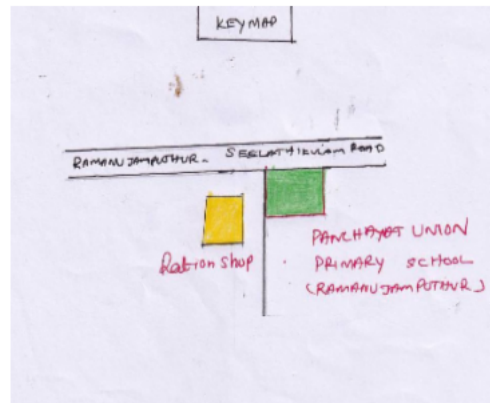 KEYMAP
RAMANUJAMPUTHUR - SEELATHIKULAM ROAD
Ration Shop
PANCHAYAT UNION
PRIMARY SCHOOL
(RAMANUJAMPUTHUR)